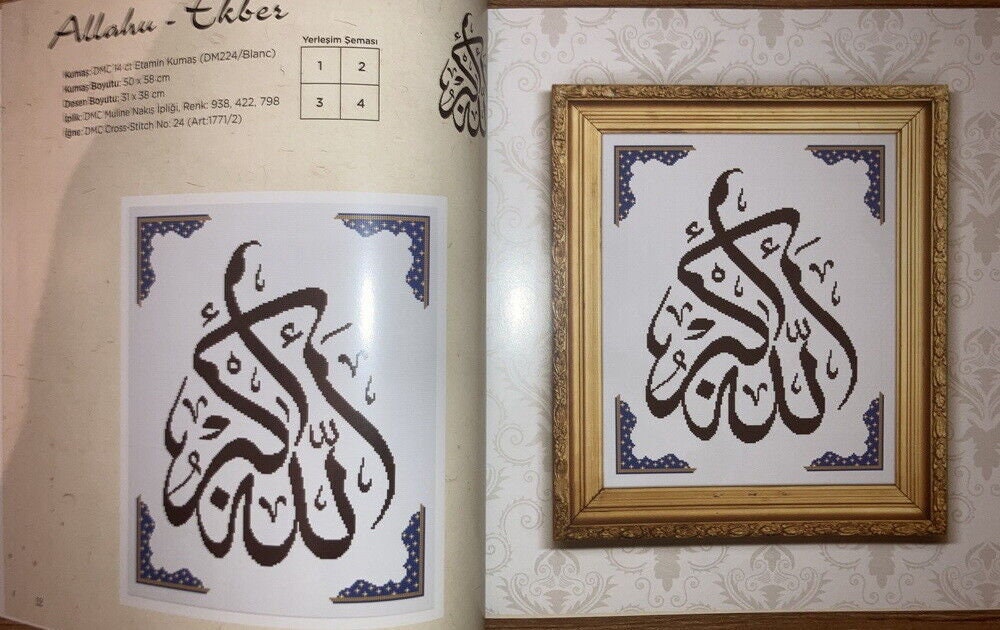 Allahu - Ekber
Kumaş: DMC 14 ct Etamin Kumaş (DM224/Blanc)
Kumaş Boyutu: 50 x 58 cm
Desen Boyutu: 31 x 38 cm
İplik: DMC Muline Nakış İpliği, Renk: 938, 422, 798
İğne: DMC Cross-Stitch No: 24 (Art:1771/2)
Yerleşim Şeması
1 2
3 4
الله أكبر
الله أكبر
الله أكبر